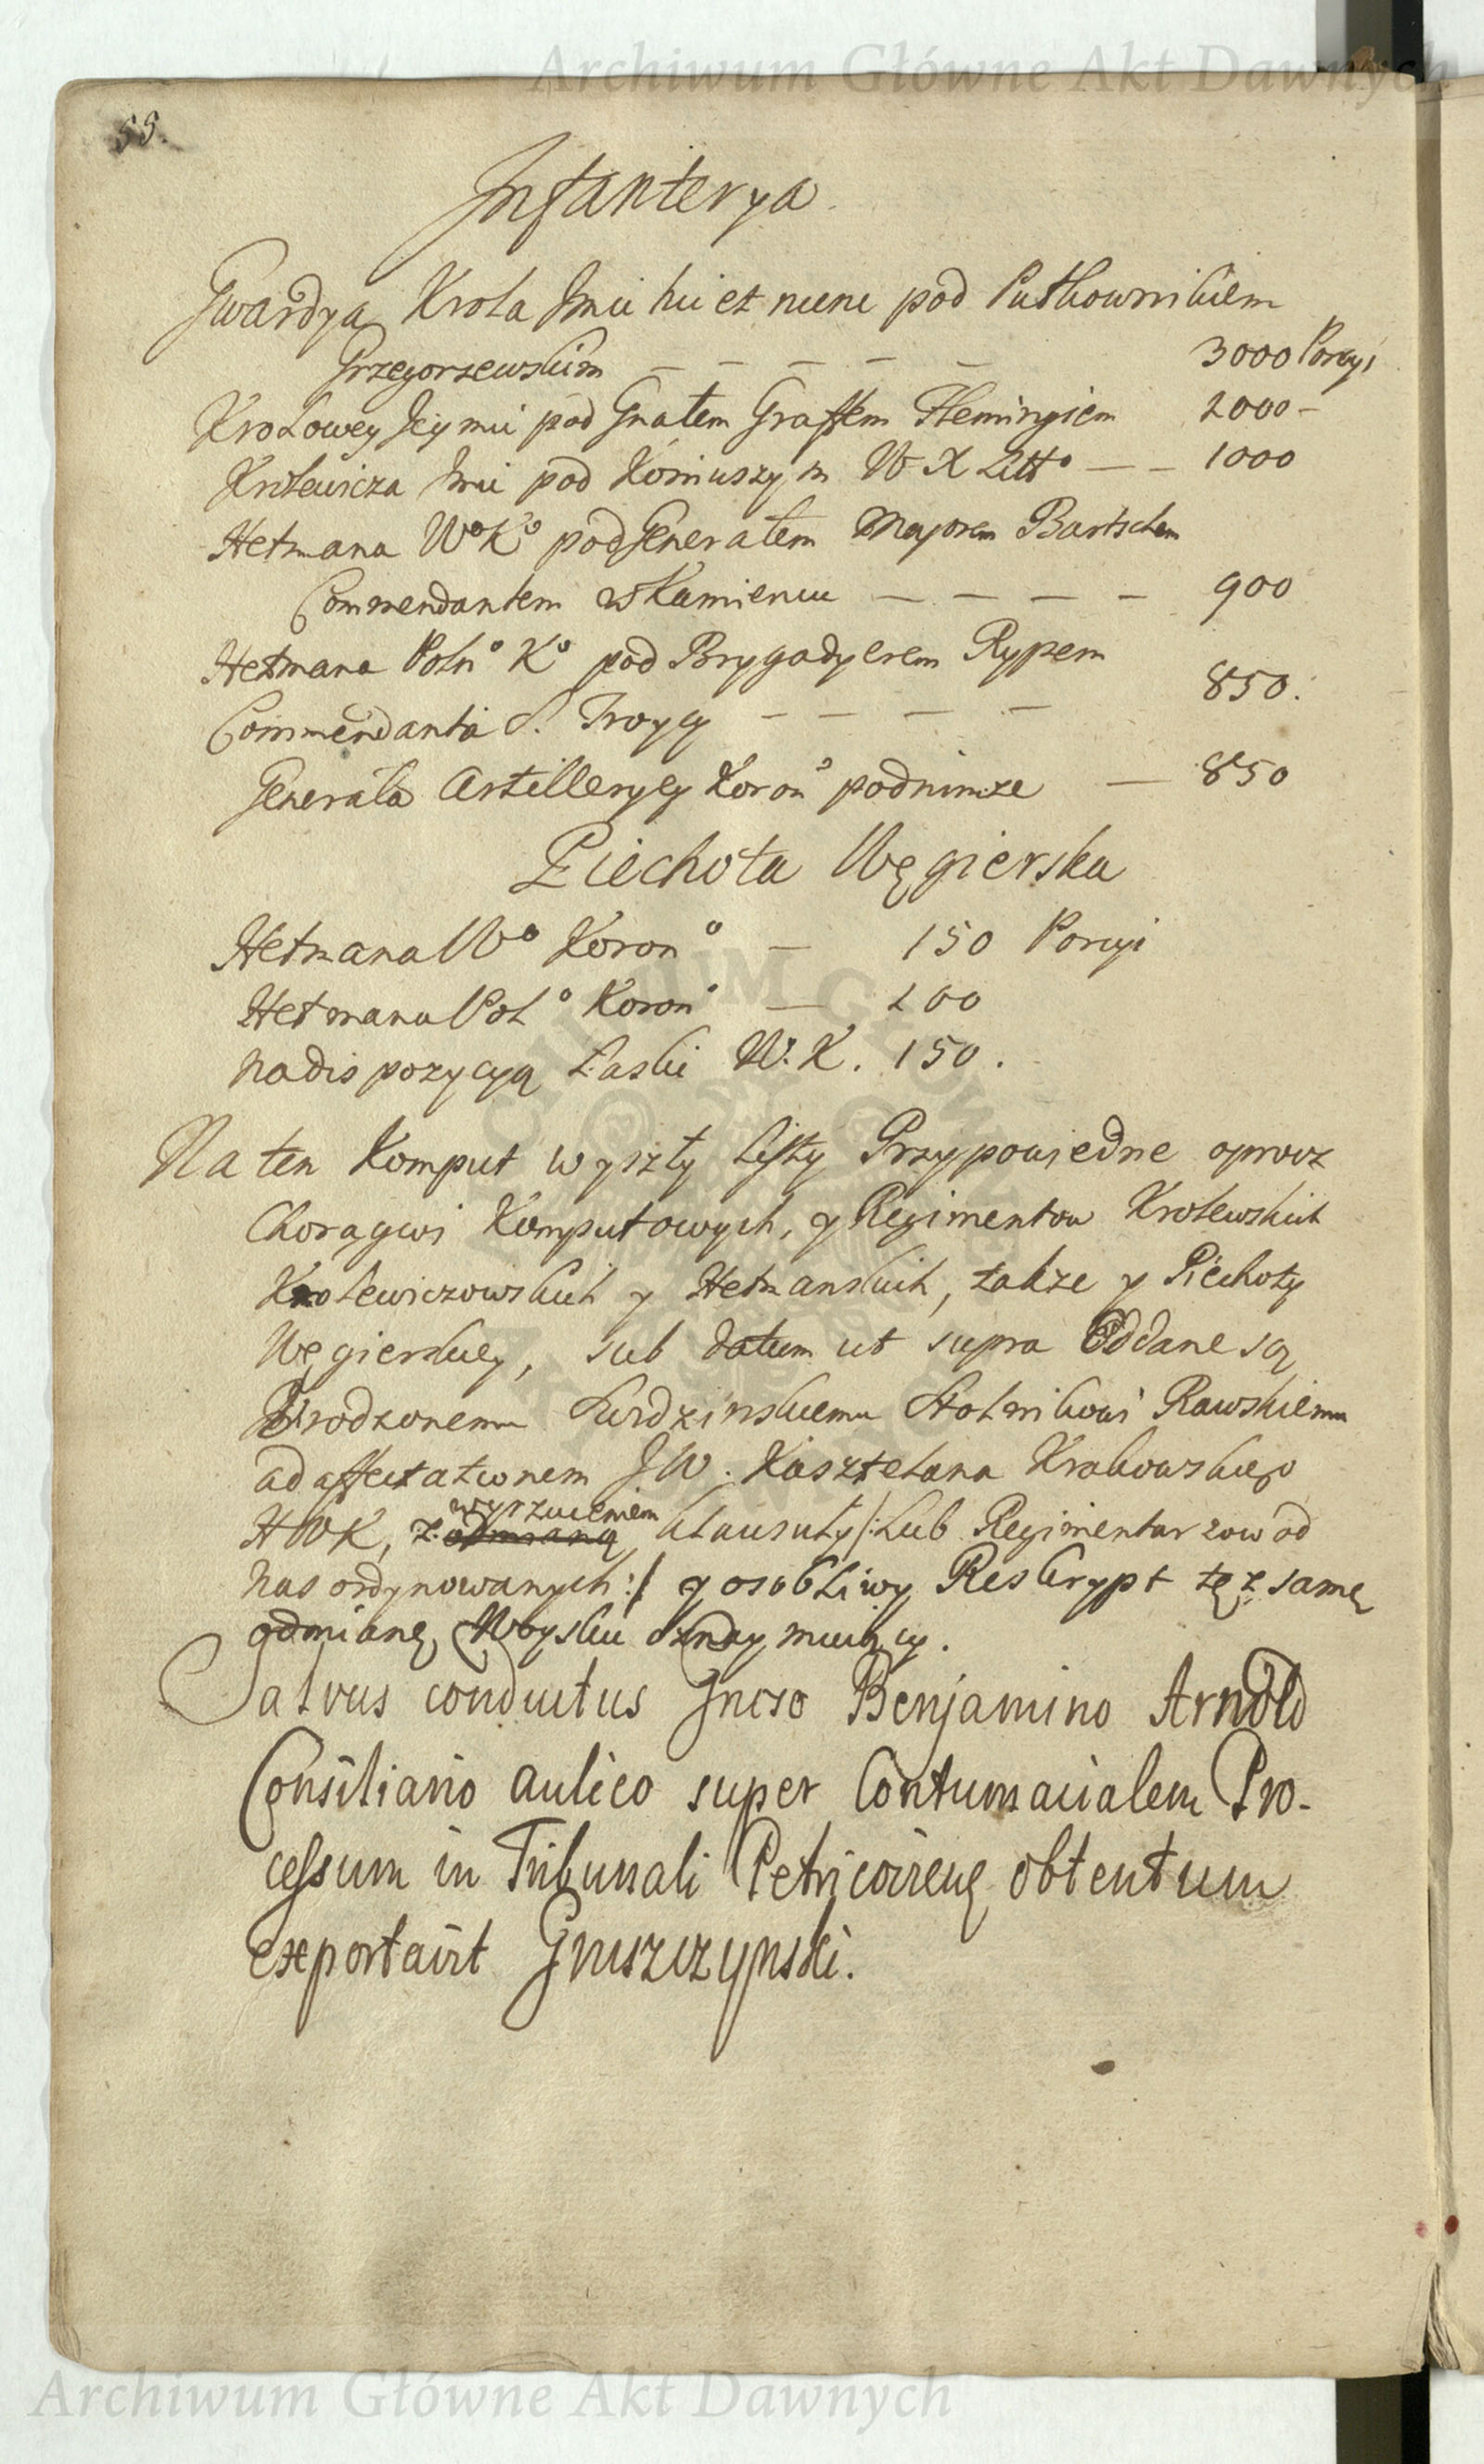 Archiwum Główne Akt Dawnych
55.
Infanterya.
Gwardya Krola Jmci huc et nunc pod Pułkownikiem
Grzegorzewskim — — — — — 3000 Porcyi
Krolowey Jeymci pod Gnałem Graffem Flemingiem 2000 –
Krolewicza Jmci pod Koniuszym W X Litto — — 1000
Hetmana Wo Ko pod Generałem Majorem Bartschem
Commendantem w Kamiencu — — — — 900
Hetmana Poln o Ko pod Brygadyerem Rypem
Commendanta S. Troycy — — — — 850.
Generała Artilleryey Koron o podnimze — 850
Piechota Węgierska
Hetmana Wo Koron o — 150 Porcyi
Hetmana Pol o Koron o — 200
Na dispozycyą Łaski W. K. 150.
Na ten Komput wyszły listy Przypowiedne oprocz
Chorągwi Komputowych, y Regimentow Krolewskich
Krolewiczowskich y Hetmanskich, także y Piechoty
Węgierskiey, sub datum ut supra Oddane są
Urodzonemu Kurdzinskiemu Stolnikowi Rawskiemu
ad affectationem JW. Kasztelana Krakowskiego
wyrzuceniem
HWK, z odmianą klausuły /: Lub Regimentarzow od
nas ordynowanych :/ y osobliwy Reskrypt tęż samę
odmianę Woysku oznaymuiący.
Salvus conductus Gnoso Benjamino Arnold
Consiliario aulico super Contumacialem Pro-
cessum in Tribunali Petricoviens obtentum
exportavit Gruszczynski.
Archiwum Główne Akt Dawnych